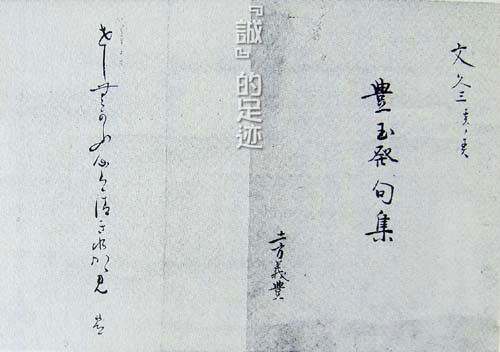 文久三亥ノ春
豊玉発句集
土方義豊
『誠』的足迹
さし無かふ心は清き水かゝ見 豊